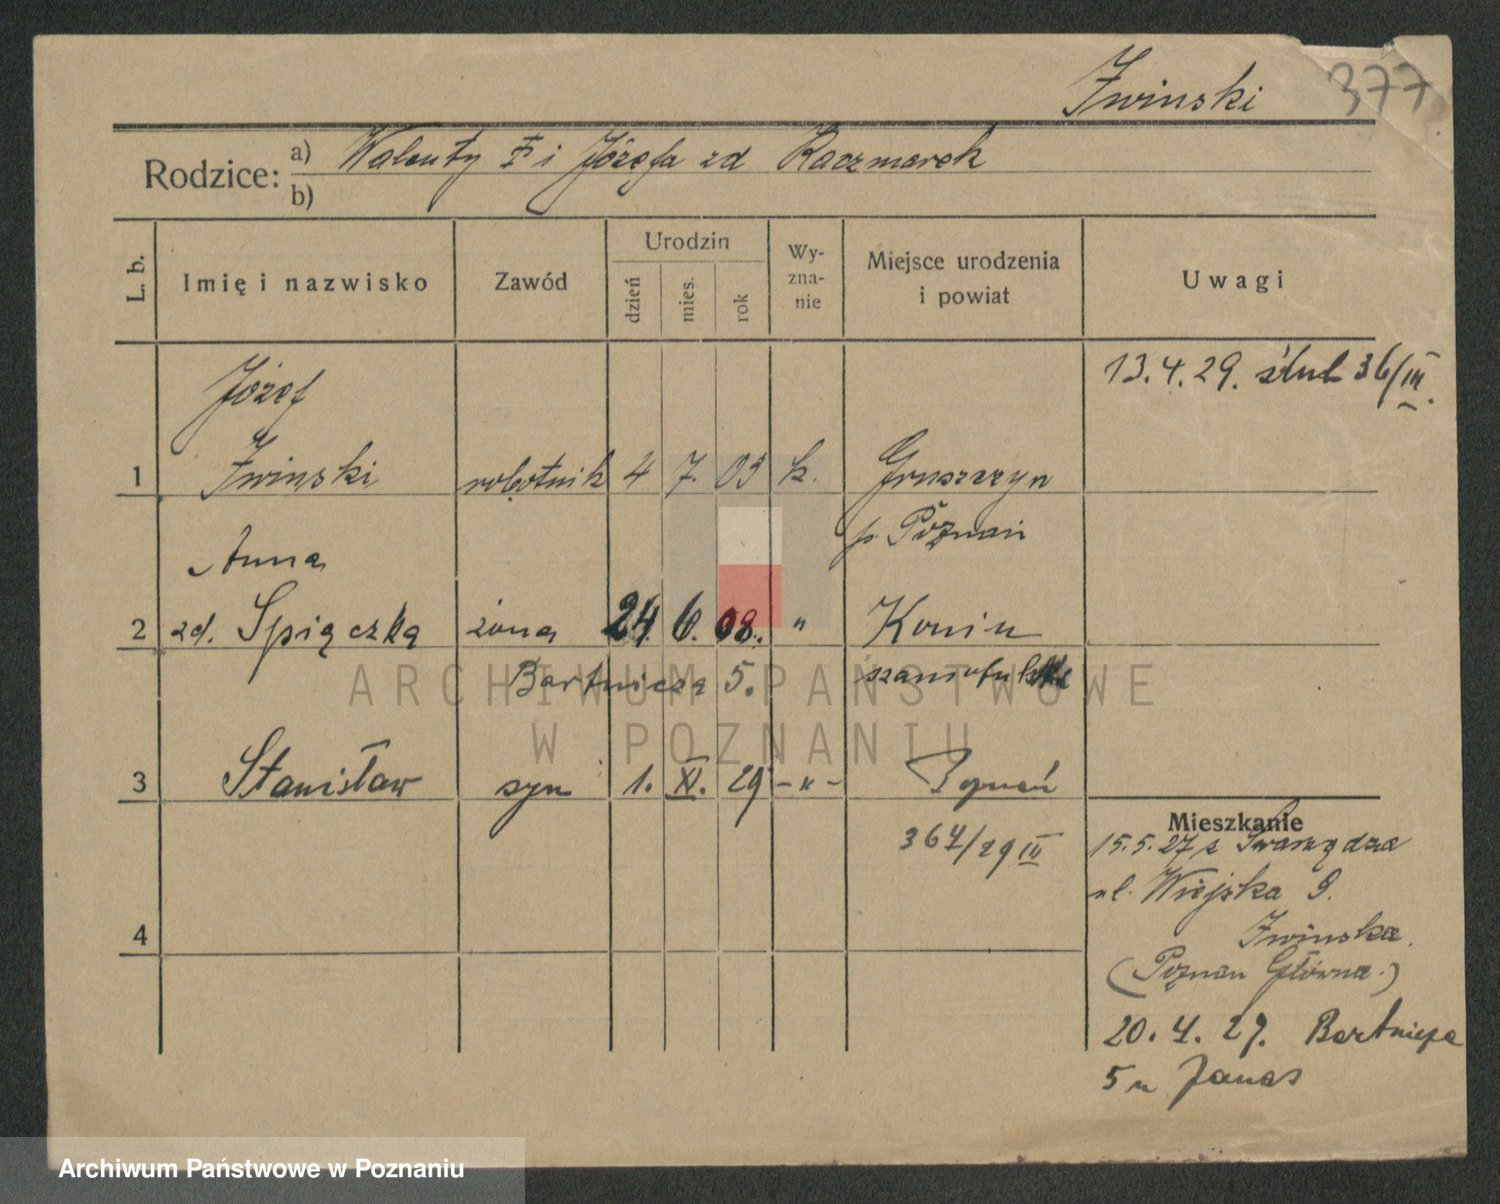 Iwinski 377
Rodzice: a) Walenty I i Józefa zd Kaczmarek
b)
L. b. Imię i nazwisko Zawód Urodzin dzień mies. rok Wy-zna-nie Miejsce urodzenia i powiat Uwagi
13.4.29. ślub 36/III.
Józef
1 Iwinski robotnik 4 7. 03 k. Gruszczyn
p. Poznań
Anna
2 zd. Spiączka żona 24. 6. 08. " Konin
Bartnicza 5. szamotulski
3 Stanisław syn 1. XI. 29 -"- Poznań
364/29 III
4
Mieszkanie
15.5.27 z Swarzędza
ul. Wiejska 9.
Iwinska.
(Poznan Główna.)
20.4.29. Bartnicza
5 u Janas
ARCHIWUM PAŃSTWOWE
W POZNANIU
Archiwum Państwowe w Poznaniu